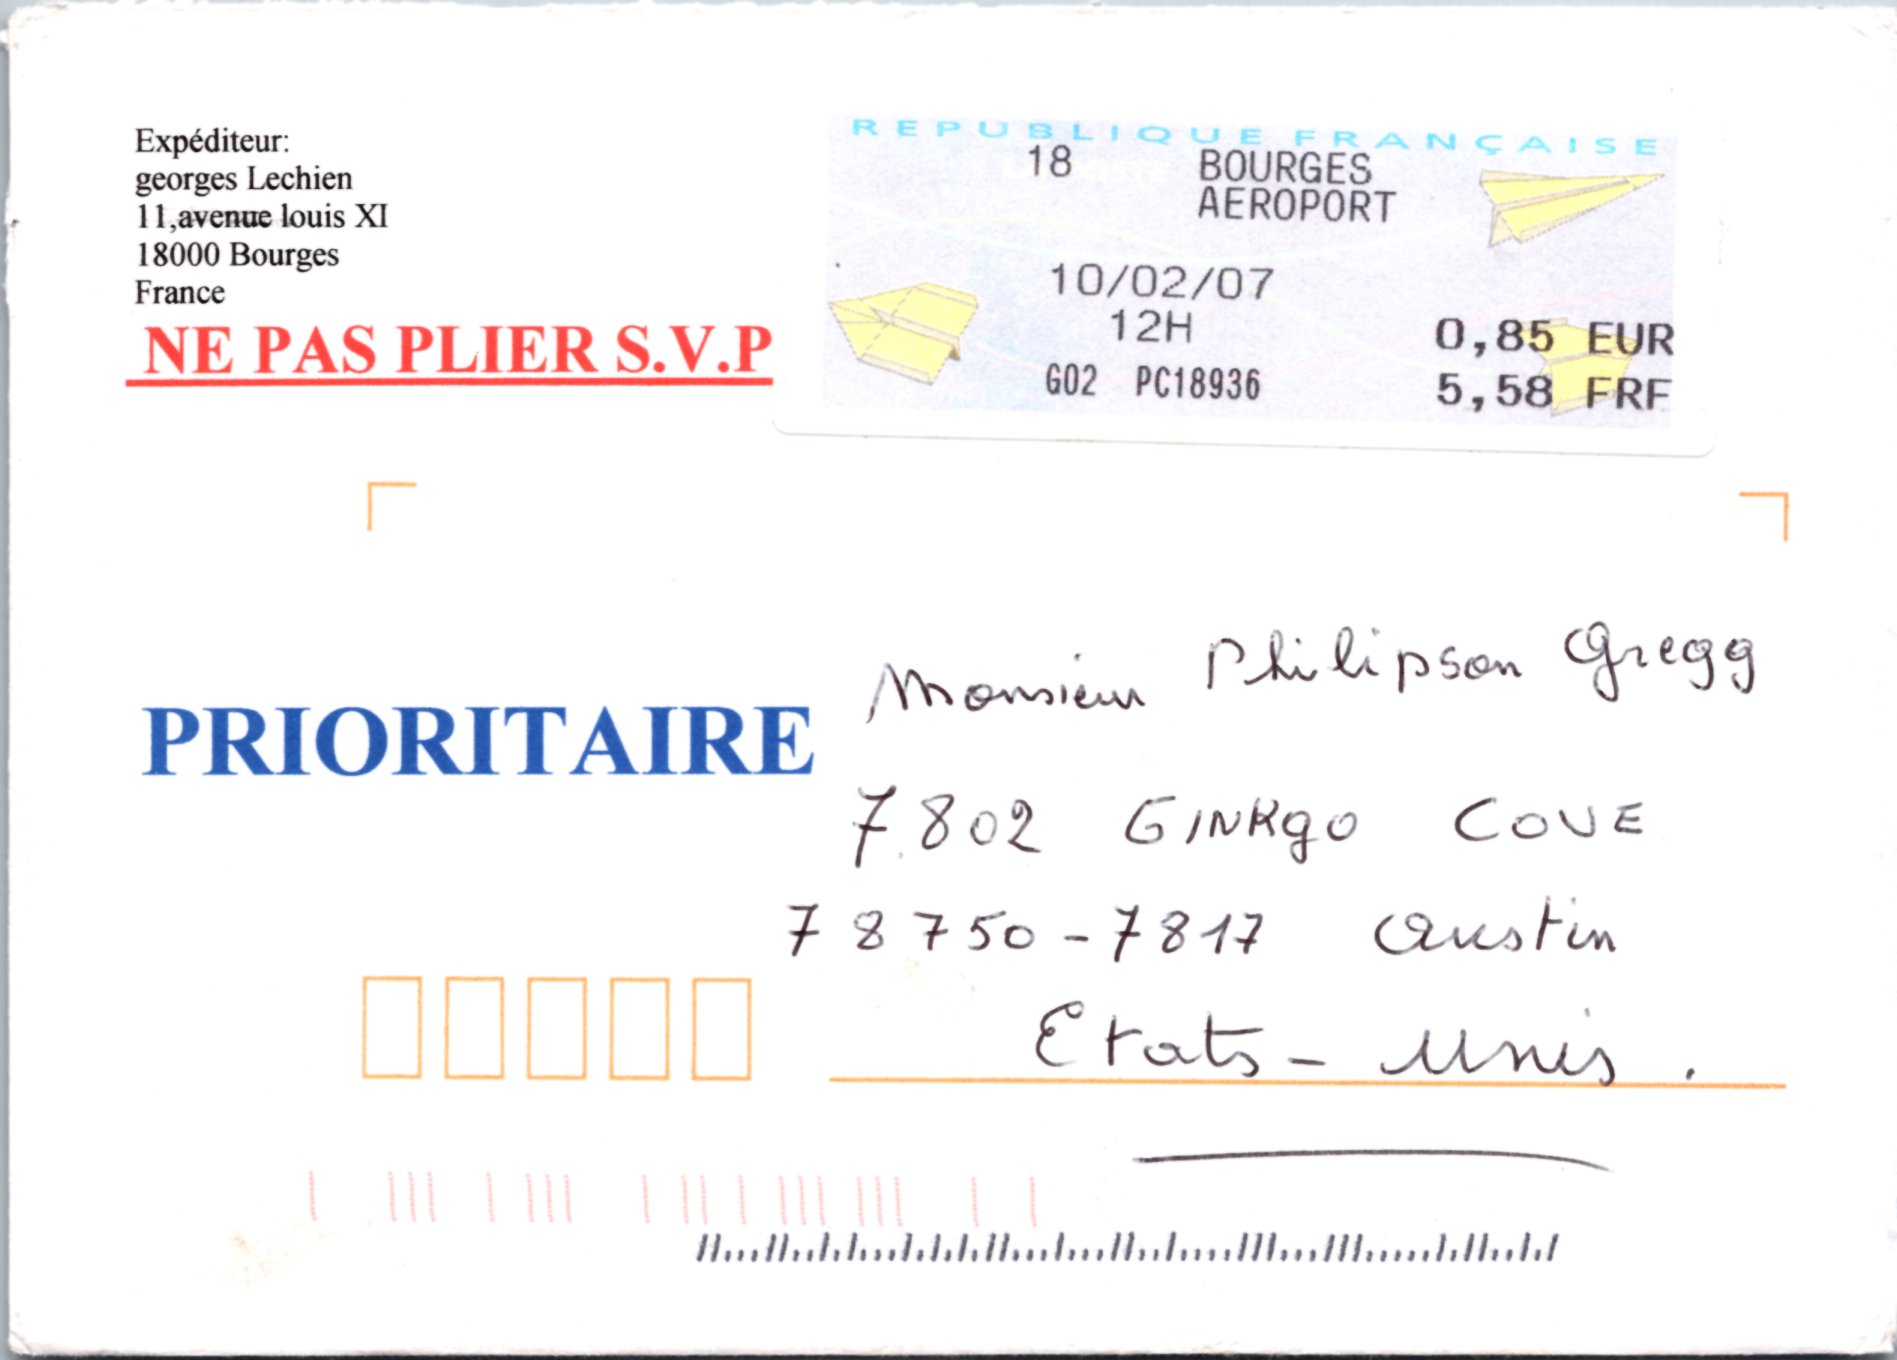 Expéditeur:
georges Lechien
11,avenue louis XI
18000 Bourges
France
NE PAS PLIER S.V.P
REPUBLIQUE FRANÇAISE
18 BOURGES
AEROPORT
10/02/07
12H
0,85 EUR
G02 PC18936
5,58 FRF
PRIORITAIRE
Monsieur Philipson Gregg
7802 GINKgo COVE
78750-7817 Austin
Etats-Unis.